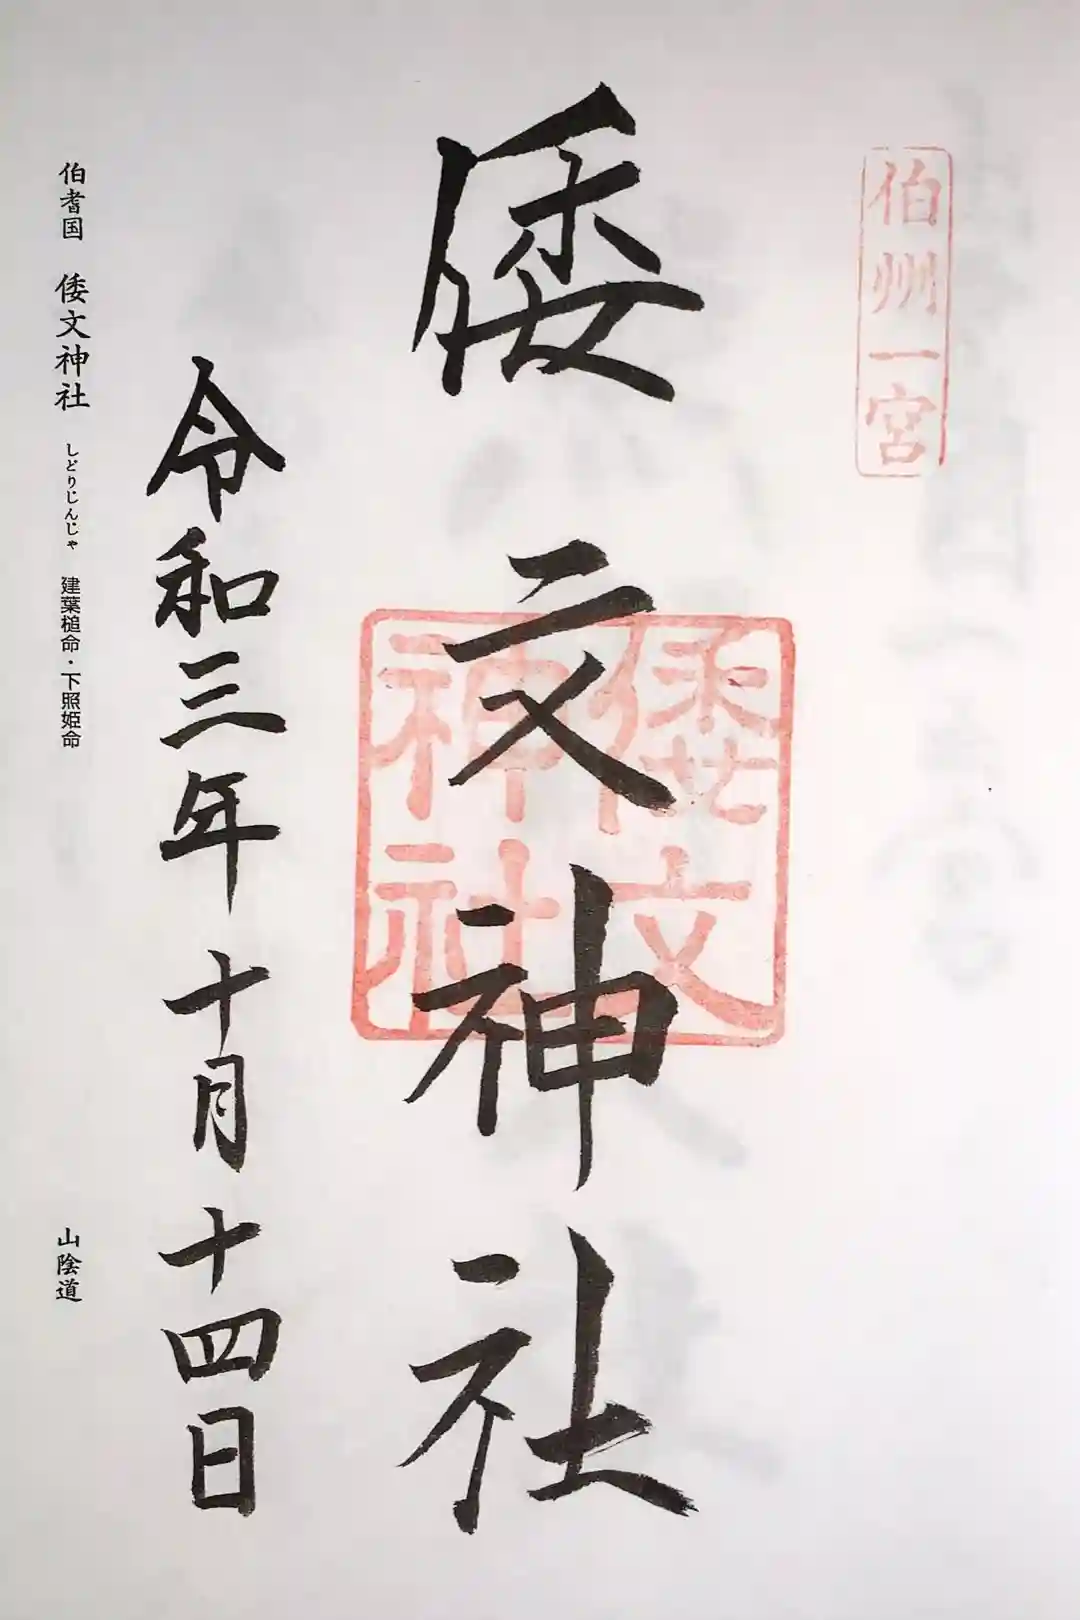 伯州一宮
倭文神社
倭文
神社
令和三年十月十四日
伯耆国 倭文神社 しどりじんじゃ 建葉槌命・下照姫命 山陰道